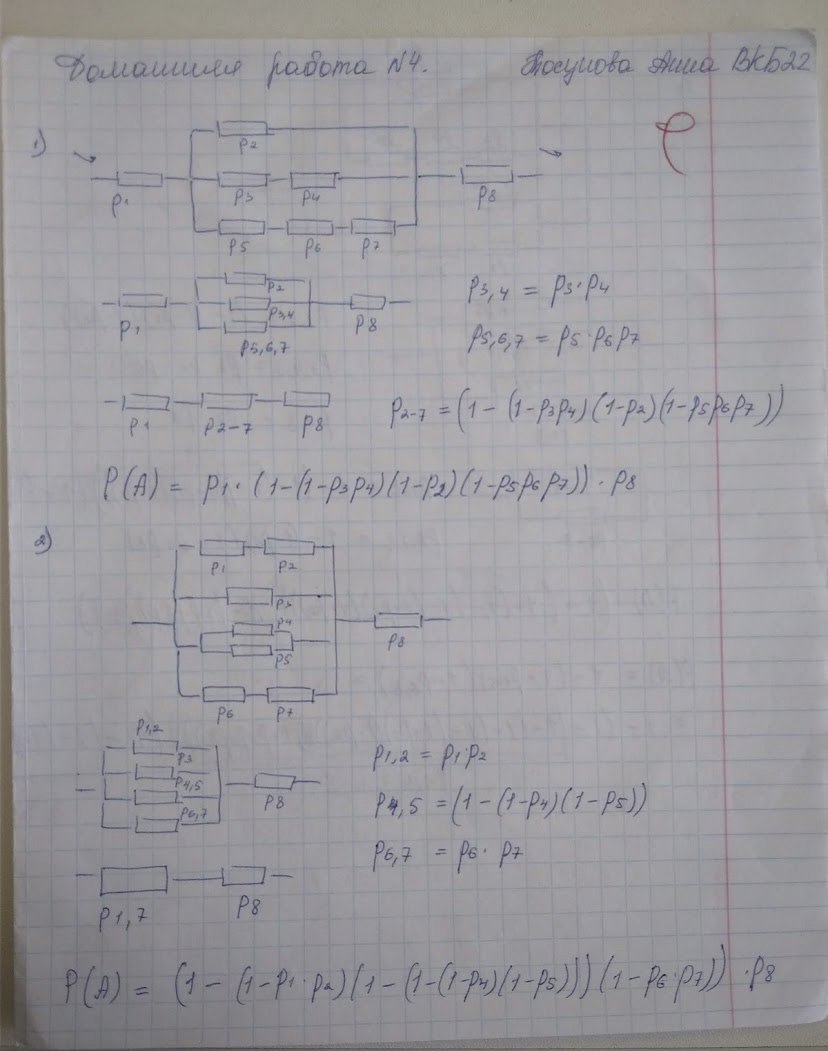 Домашняя работа N4. Тосунова Анна ВКБ22
1)
p2
p1 p3 p4 p8
p5 p6 p7
p2
p3,4
p1 p8
p5,6,7
p3,4 = p3·p4
p5,6,7 = p5·p6p7
p1 p2-7 p8 p2-7 = (1-(1-p3p4)(1-p2)(1-p5p6p7))
P(A) = p1·(1-(1-p3p4)(1-p2)(1-p5p6p7))·p8
2)
p1 p2
p3
p4
p5 p8
p6 p7
p1,2
p3
p4,5
p6,7 p8
p1,2 = p1·p2
p4,5 = (1-(1-p4)(1-p5))
p6,7 = p6·p7
p1,7 p8
P(A) = (1-(1-p1·p2)(1-(1-(1-p4)(1-p5)))(1-p6·p7))·p8